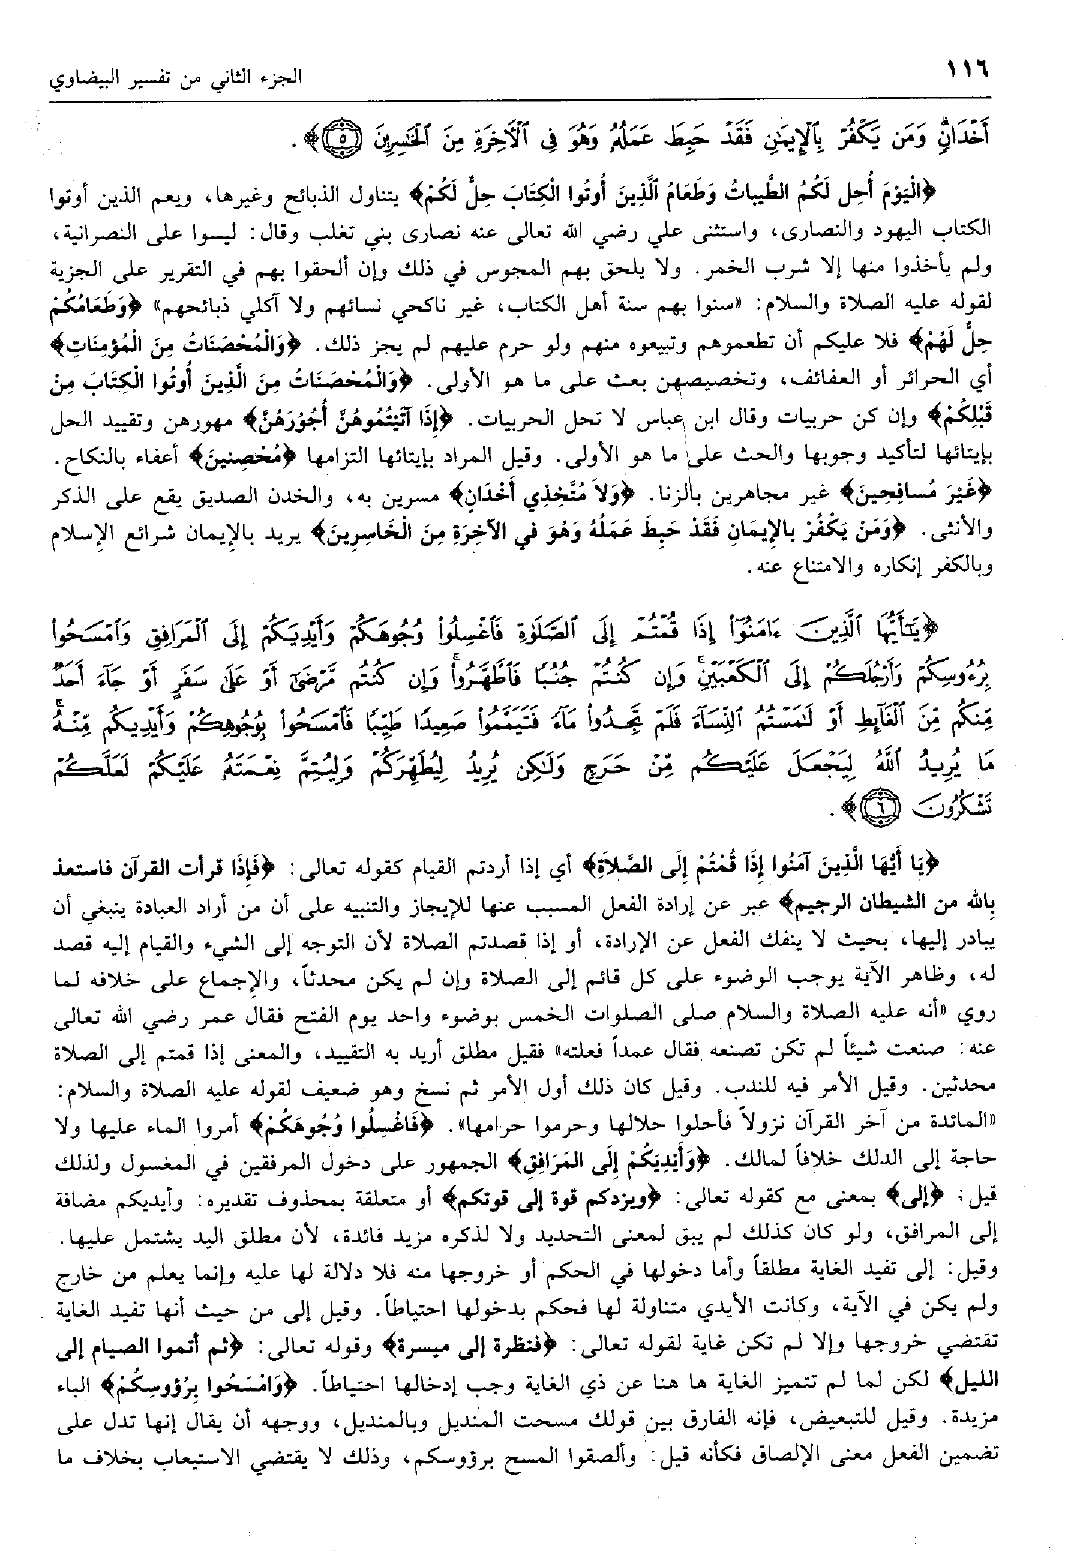 ١١٦
الجزء الثاني من تفسير البيضاوي
أَخْدَانٍ وَمَن يَكْفُرْ بِالْإِيمَٰنِ فَقَدْ حَبِطَ عَمَلُهُ وَهُوَ فِي الْآخِرَةِ مِنَ الْخَٰسِرِينَ ﴿٥﴾﴾.
﴿الْيَوْمَ أُحِل لَكُمُ الطَّيباتُ وَطَعَامُ الَّذِينَ أُوتُوا الْكِتَابَ حِلٌّ لَكُمْ﴾ يتناول الذبائح وغيرها، ويعم الذين أوتوا
الكتاب اليهود والنصارى، واستثنى علي رضي الله تعالى عنه نصارى بني تغلب وقال: ليسوا على النصرانية،
ولم يأخذوا منها إلا شرب الخمر. ولا يلحق بهم المجوس في ذلك وإن ألحقوا بهم في التقرير على الجزية
لقوله عليه الصلاة والسلام: «سنوا بهم سنة أهل الكتاب، غير ناكحي نسائهم ولا آكلي ذبائحهم» ﴿وَطَعَامُكُمْ
حِلٌّ لَهُمْ﴾ فلا عليكم أن تطعموهم وتبيعوه منهم ولو حرم عليهم لم يجز ذلك. ﴿وَالْمُحْصَنَاتُ مِنَ الْمُؤْمِنَاتِ﴾
أي الحرائر أو العفائف، وتخصيصهن بعث على ما هو الأولى. ﴿وَالْمُحْصَنَاتُ مِنَ الَّذِينَ أُوتُوا الْكِتَابَ مِنْ
قَبْلِكُمْ﴾ وإن كن حربيات وقال ابن عباس لا تحل الحربيات. ﴿إِذَا آتَيْتُمُوهُنَّ أُجُوْرَهُنَّ﴾ مهورهن وتقييد الحل
بإيتائها لتأكيد وجوبها والحث على ما هو الأولى. وقيل المراد بإيتائها التزامها ﴿مُحْصِنينَ﴾ أعفاء بالنكاح.
﴿غَيْرَ مُسافِحِينَ﴾ غير مجاهرين بالزنا. ﴿وَلاَ مُتَّخِذِي أَخْدَانٍ﴾ مسرين به، والخدن الصديق يقع على الذكر
والأنثى. ﴿وَمَنْ يَكْفُرْ بالإِيمَانِ فَقَدْ حَبِطَ عَمَلُهُ وَهُوَ في الآخِرَةِ مِنَ الْخَاسِرِينَ﴾ يريد بالإيمان شرائع الإسلام
وبالكفر إنكاره والامتناع عنه.
﴿يَٰٓأَيُّهَا الَّذِينَ ءَامَنُوٓا إِذَا قُمْتُمْ إِلَى الصَّلَوٰةِ فَاغْسِلُوا وُجُوهَكُمْ وَأَيْدِيَكُمْ إِلَى الْمَرَافِقِ وَامْسَحُوا
بِرُءُوسِكُمْ وَأَرْجُلَكُمْ إِلَى الْكَعْبَيْنِ وَإِن كُنتُمْ جُنُبًا فَاطَّهَّرُوا وَإِن كُنتُم مَّرْضَىٰٓ أَوْ عَلَىٰ سَفَرٍ أَوْ جَآءَ أَحَدٌ
مِّنكُم مِّنَ الْغَآئِطِ أَوْ لَٰمَسْتُمُ النِّسَآءَ فَلَمْ تَجِدُوا مَآءً فَتَيَمَّمُوا صَعِيدًا طَيِّبًا فَامْسَحُوا بِوُجُوهِكُمْ وَأَيْدِيكُم مِّنْهُ
مَا يُرِيدُ اللَّهُ لِيَجْعَلَ عَلَيْكُم مِّنْ حَرَجٍ وَلَٰكِن يُرِيدُ لِيُطَهِّرَكُمْ وَلِيُتِمَّ نِعْمَتَهُ عَلَيْكُمْ لَعَلَّكُمْ
تَشْكُرُونَ ﴿٦﴾﴾.
﴿يَا أَيُّهَا الَّذِينَ آمَنُوا إِذَا قُمْتُمْ إِلَى الصَّلاَةِ﴾ أي إذا أردتم القيام كقوله تعالى: ﴿فَإِذَا قرأت القرآن فاستعذ
بالله من الشيطان الرجيم﴾ عبر عن إرادة الفعل المسبب عنها للإيجاز والتنبيه على أن من أراد العبادة ينبغي أن
يبادر إليها، بحيث لا ينفك الفعل عن الإرادة، أو إذا قصدتم الصلاة لأن التوجه إلى الشيء والقيام إليه قصد
له، وظاهر الآية يوجب الوضوء على كل قائم إلى الصلاة وإن لم يكن محدثاً، والإجماع على خلافه لما
روي «أنه عليه الصلاة والسلام صلى الصلوات الخمس بوضوء واحد يوم الفتح فقال عمر رضي الله تعالى
عنه: صنعت شيئاً لم تكن تصنعه فقال عمداً فعلته» فقيل مطلق أريد به التقييد، والمعنى إذا قمتم إلى الصلاة
محدثين. وقيل الأمر فيه للندب. وقيل كان ذلك أول الأمر ثم نسخ وهو ضعيف لقوله عليه الصلاة والسلام:
«المائدة من آخر القرآن نزولاً فأحلوا حلالها وحرموا حرامها». ﴿فَاغْسِلُوا وُجُوهَكُمْ﴾ أمروا الماء عليها ولا
حاجة إلى الدلك خلافاً لمالك. ﴿وَأَيْدِيَكُمْ إِلَى المَرَافِقِ﴾ الجمهور على دخول المرفقين في المغسول ولذلك
قيل: ﴿إلى﴾ بمعنى مع كقوله تعالى: ﴿ويزدكم قوة إلى قوتكم﴾ أو متعلقة بمحذوف تقديره: وأيديكم مضافة
إلى المرافق، ولو كان كذلك لم يبق لمعنى التحديد ولا لذكره مزيد فائدة، لأن مطلق اليد يشتمل عليها.
وقيل: إلى تفيد الغاية مطلقاً وأما دخولها في الحكم أو خروجها منه فلا دلالة لها عليه وإنما يعلم من خارج
ولم يكن في الآية، وكانت الأيدي متناولة لها فحكم بدخولها احتياطاً. وقيل إلى من حيث أنها تفيد الغاية
تقتضي خروجها وإلا لم تكن غاية لقوله تعالى: ﴿فنظرة إلى ميسرة﴾ وقوله تعالى: ﴿ثم أتموا الصيام إلى
الليل﴾ لكن لما لم تتميز الغاية ها هنا عن ذي الغاية وجب إدخالها احتياطاً. ﴿وَامْسَحُوا بِرُؤوسِكُمْ﴾ الباء
مزيدة. وقيل للتبعيض، فإنه الفارق بين قولك مسحت المنديل وبالمنديل، ووجهه أن يقال إنها تدل على
تضمين الفعل معنى الإلصاق فكأنه قيل: وألصقوا المسح برؤوسكم، وذلك لا يقتضي الاستيعاب بخلاف ما